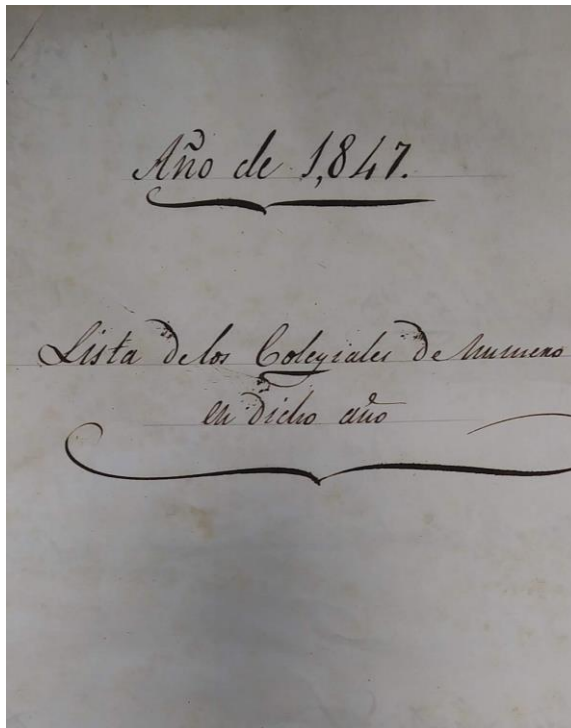 Año de 1,847.
Lista de los Colegiales de numero
en dicho año